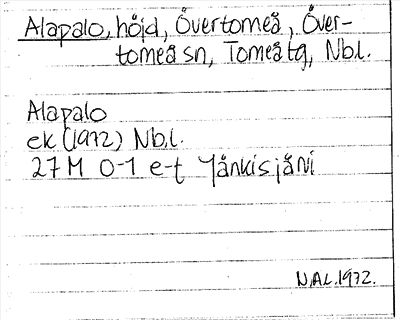 Alapalo, höjd, Övertorneå, Över-
torneå sn, Torneå tg, Nb.l.
Alapalo
ek (1972) Nb.l.
27 M 0-1 e-f Jänkisjärvi
N.AL.1972.